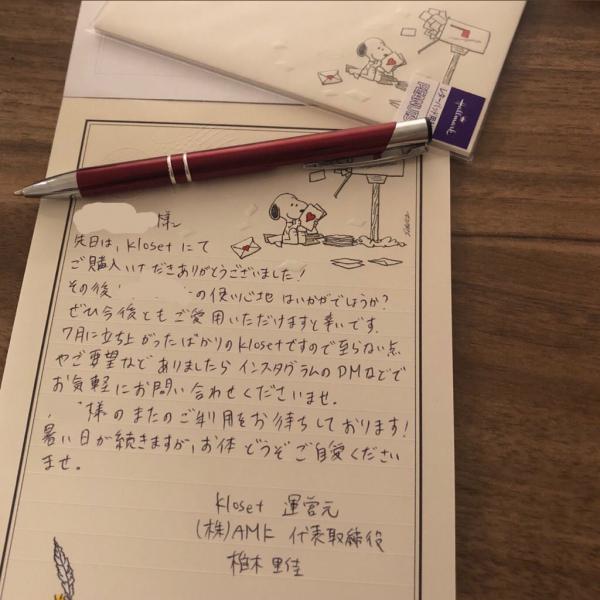 Hallmark
レターパッド
PEANUTS
様
先日は、klosetにて
ご購入いただきありがとうございました!
その後 の使い心地はいかがでしょうか?
ぜひ今後ともご愛用いただけますと幸いです。
7月に立ち上がったばかりのklosetですので至らない点
やご要望などありましたらインスタグラムのDMなどで
お気軽にお問い合わせくださいませ。
様のまたのご利用をお待ちしております!
暑い日が続きますが、お体どうぞご自愛ください
ませ。
kloset 運営元
(株)AMF 代表取締役
椎木里佳